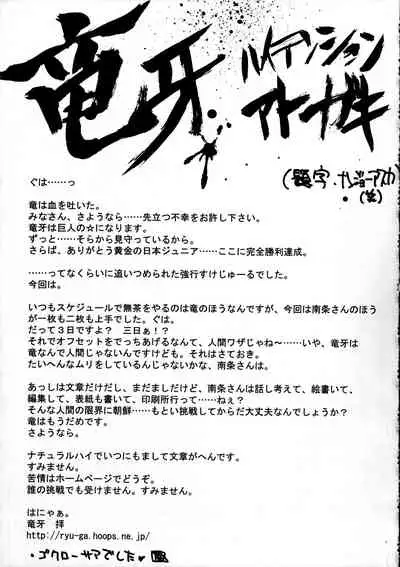 竜牙
ハイテンション
アトガキ
ぐは……っ
竜は血を吐いた。
みなさん、さようなら……先立つ不幸をお許し下さい。
竜牙は巨人の☆になります。
ずっと……そらから見守っているから。
さらば、ありがとう黄金の日本ジュニア……ここに完全勝利達成。
……ってなくらいに追いつめられた強行すけじゅーるでした。
今回は。
いつもスケジュールで無茶をやるのは竜のほうなんですが、今回は南条さんのほう
が一枚も二枚も上手でした。ぐは。
だって３日ですよ？　三日ぁ！？
それでオフセットをでっちあげるなんて、人間ワザじゃね〜……いや、竜牙は
竜なんで人間じゃないんですけども。それはさておき。
たいへんなムリをしているんじゃないかな、南条さんは。
あっしは文章だけだし、まだましだけど、南条さんは話し考えて、絵書いて、
編集して、表紙も書いて、印刷所行って……ねぇ？
そんな人間の限界に朝鮮……もとい挑戦してからだ大丈夫なんでしょうか？
竜はもうだめです。
さようなら。
ナチュラルハイでいつにもまして文章がへんです。
すみません。
苦情はホームページでどうぞ。
誰の挑戦でも受けません。すみません。
はにゃぁ。
竜牙　拝
http://ryu-ga.hoops.ne.jp/
・ゴクローサマでした♥